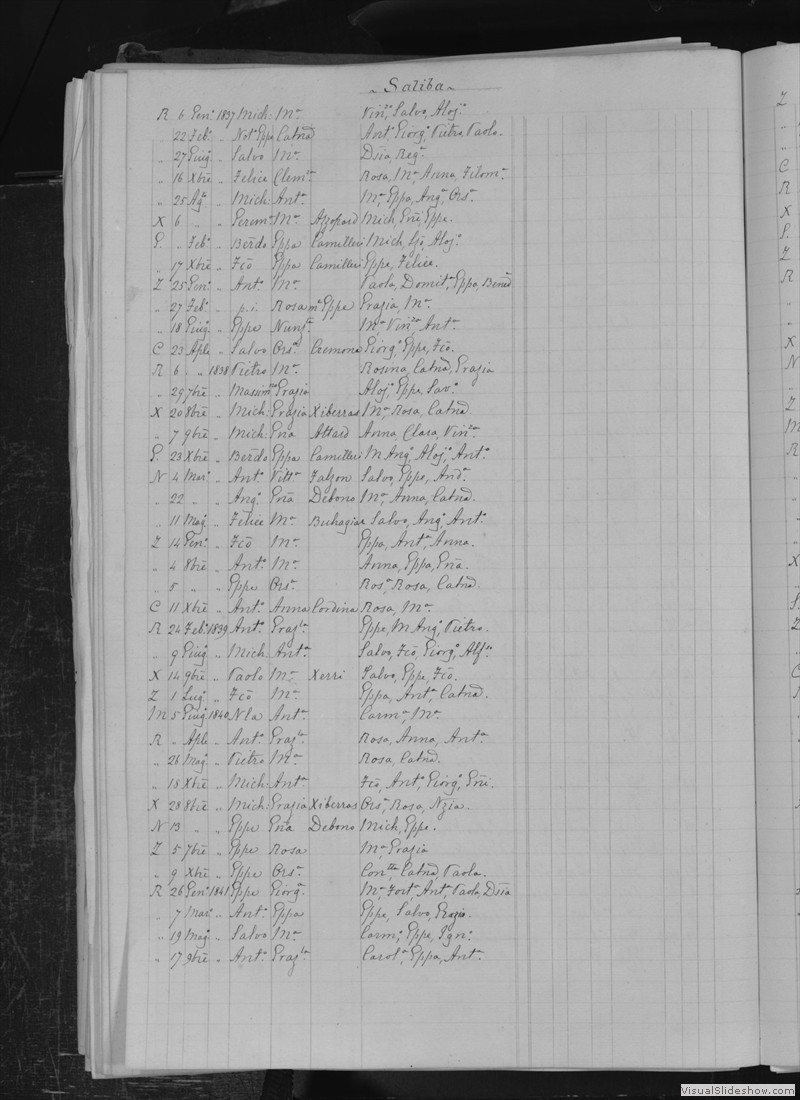 ~ Saliba ~
R 6 Gen.º 1837 Mich: M.ª Vin.ᶻᵒ, Salvo, Aloj.º
22 Feb.º " Not.º Eppe Catnā Ant.º Giorg.º Pietro Paolo.
" 27 Giug.º " Salvo M.ª Dsia, Reg.ª
" 16 Xbrē " Felice Clem.ª Rosa, M.ª Anna, Filom.ª
" 25 Ag.º " Mich: Ant.ª M.ª Eppa, Ang.ª, Ors.ª
X 6 " " Gerem.ª M.ª Azzopard Mich, Enē, Eppe.
G. " Feb.º " Berdo Eppa Camilleri Mich, Aloj.º
" 17 Xbrē " Fcō Eppa Camilleri Eppe, Felice.
Z 25 Gen.º " Ant.º M.ª Paola, Domit.ª, Eppa, Bened
" 27 Feb.º " p.i. Rosa m.ª Eppe Grazia, M.ª
" 18 Giug.º " Eppe Nunz.ᵗᵃ M.ª Vin.ᶻᵃ Ant.ª
C 23 Aple " Salvo Ors.ª Cremona Giorg.º, Eppe, Fcō.
R 6 " " 1838 Pietro M.ª Rosina, Catnā, Grazia
" 29 7brē " Massim.ⁿᵒ Grazia Aloj.º, Eppe, Sav.º
X 20 8brē " Mich: Grazia Xiberras M.ª, Rosa, Catnā.
" 7 9brē " Mich: Enā Attard Anna, Clara, Vin.ᶻᵃ
G. 23 Xbrē " Berdo Eppa Camilleri M Ang.º, Aloj.º, Ant.º
N 4 Mar.º " Ant.º Vitt.ª Falzon Salvo, Eppe, And.ª
" 22 " " Ang.º Enā Debono M.ª, Anna, Catnā.
" 11 Mag.º " Felice M.ª Buhagiar Salvo, Ang.º, Ant.º
Z 14 Gen.º " Fcō M.ª Eppa, Ant.ª, Anna.
" 4 8brē " Ant.º M.ª Anna, Eppa, Enā.
" 5 " " Eppe Ors.ª Ros.ª, Rosa, Catnā.
C 11 Xbrē " Ant.º Anna Cordina Rosa, M.ª
R 24 Feb.º 1839 Ant.º Graz.ˡᵃ Eppe, M Ang.º, Pietro.
" 9 Giug.º " Mich: Ant.ª Salvo, Fcō, Giorg.º, Alf.ˢᵒ
X 14 9brē " Paolo M.ª Xerri Salvo, Eppe, Fcō.
Z 1 Lug.º " Fcō M.ª Eppa, Ant.ª, Catnā.
M 5 Giug.º 1840 Nla Ant.ª Carm.ª, M.ª
R " Aple " Ant.º Graz.ˡᵃ Rosa, Anna, Ant.ª
" 26 Mag.º " Pietro M.ª Rosa, Catnā.
" 18 Xbrē " Mich: Ant.ª Fcō, Ant.º, Giorg.º, Enē.
X 28 8brē " Mich: Grazia Xiberras Ors.ª, Rosa, Nzia.
N 13 " " Eppe Enā Debono Mich, Eppe.
Z 5 7brē " Eppe Rosa M.ª Grazia
" 9 Xbrē " Eppe Ors.ª Con.ᵗᵗᵃ, Catnā, Paola.
R 26 Gen.º 1841 Eppe Giorg.ª M.ª, Fort.ª, Ant.ª, Paola, Dsia
" 7 Mar.º " Ant.º Eppa Eppe, Salvo, Grazio.
" 19 Mag.º " Salvo M.ª Carm.º, Eppe, Ign.º
" 17 9brē " Ant.º Graz.ˡᵃ Carol.ª, Eppa, Ant.ª
VisualSlideshow.com